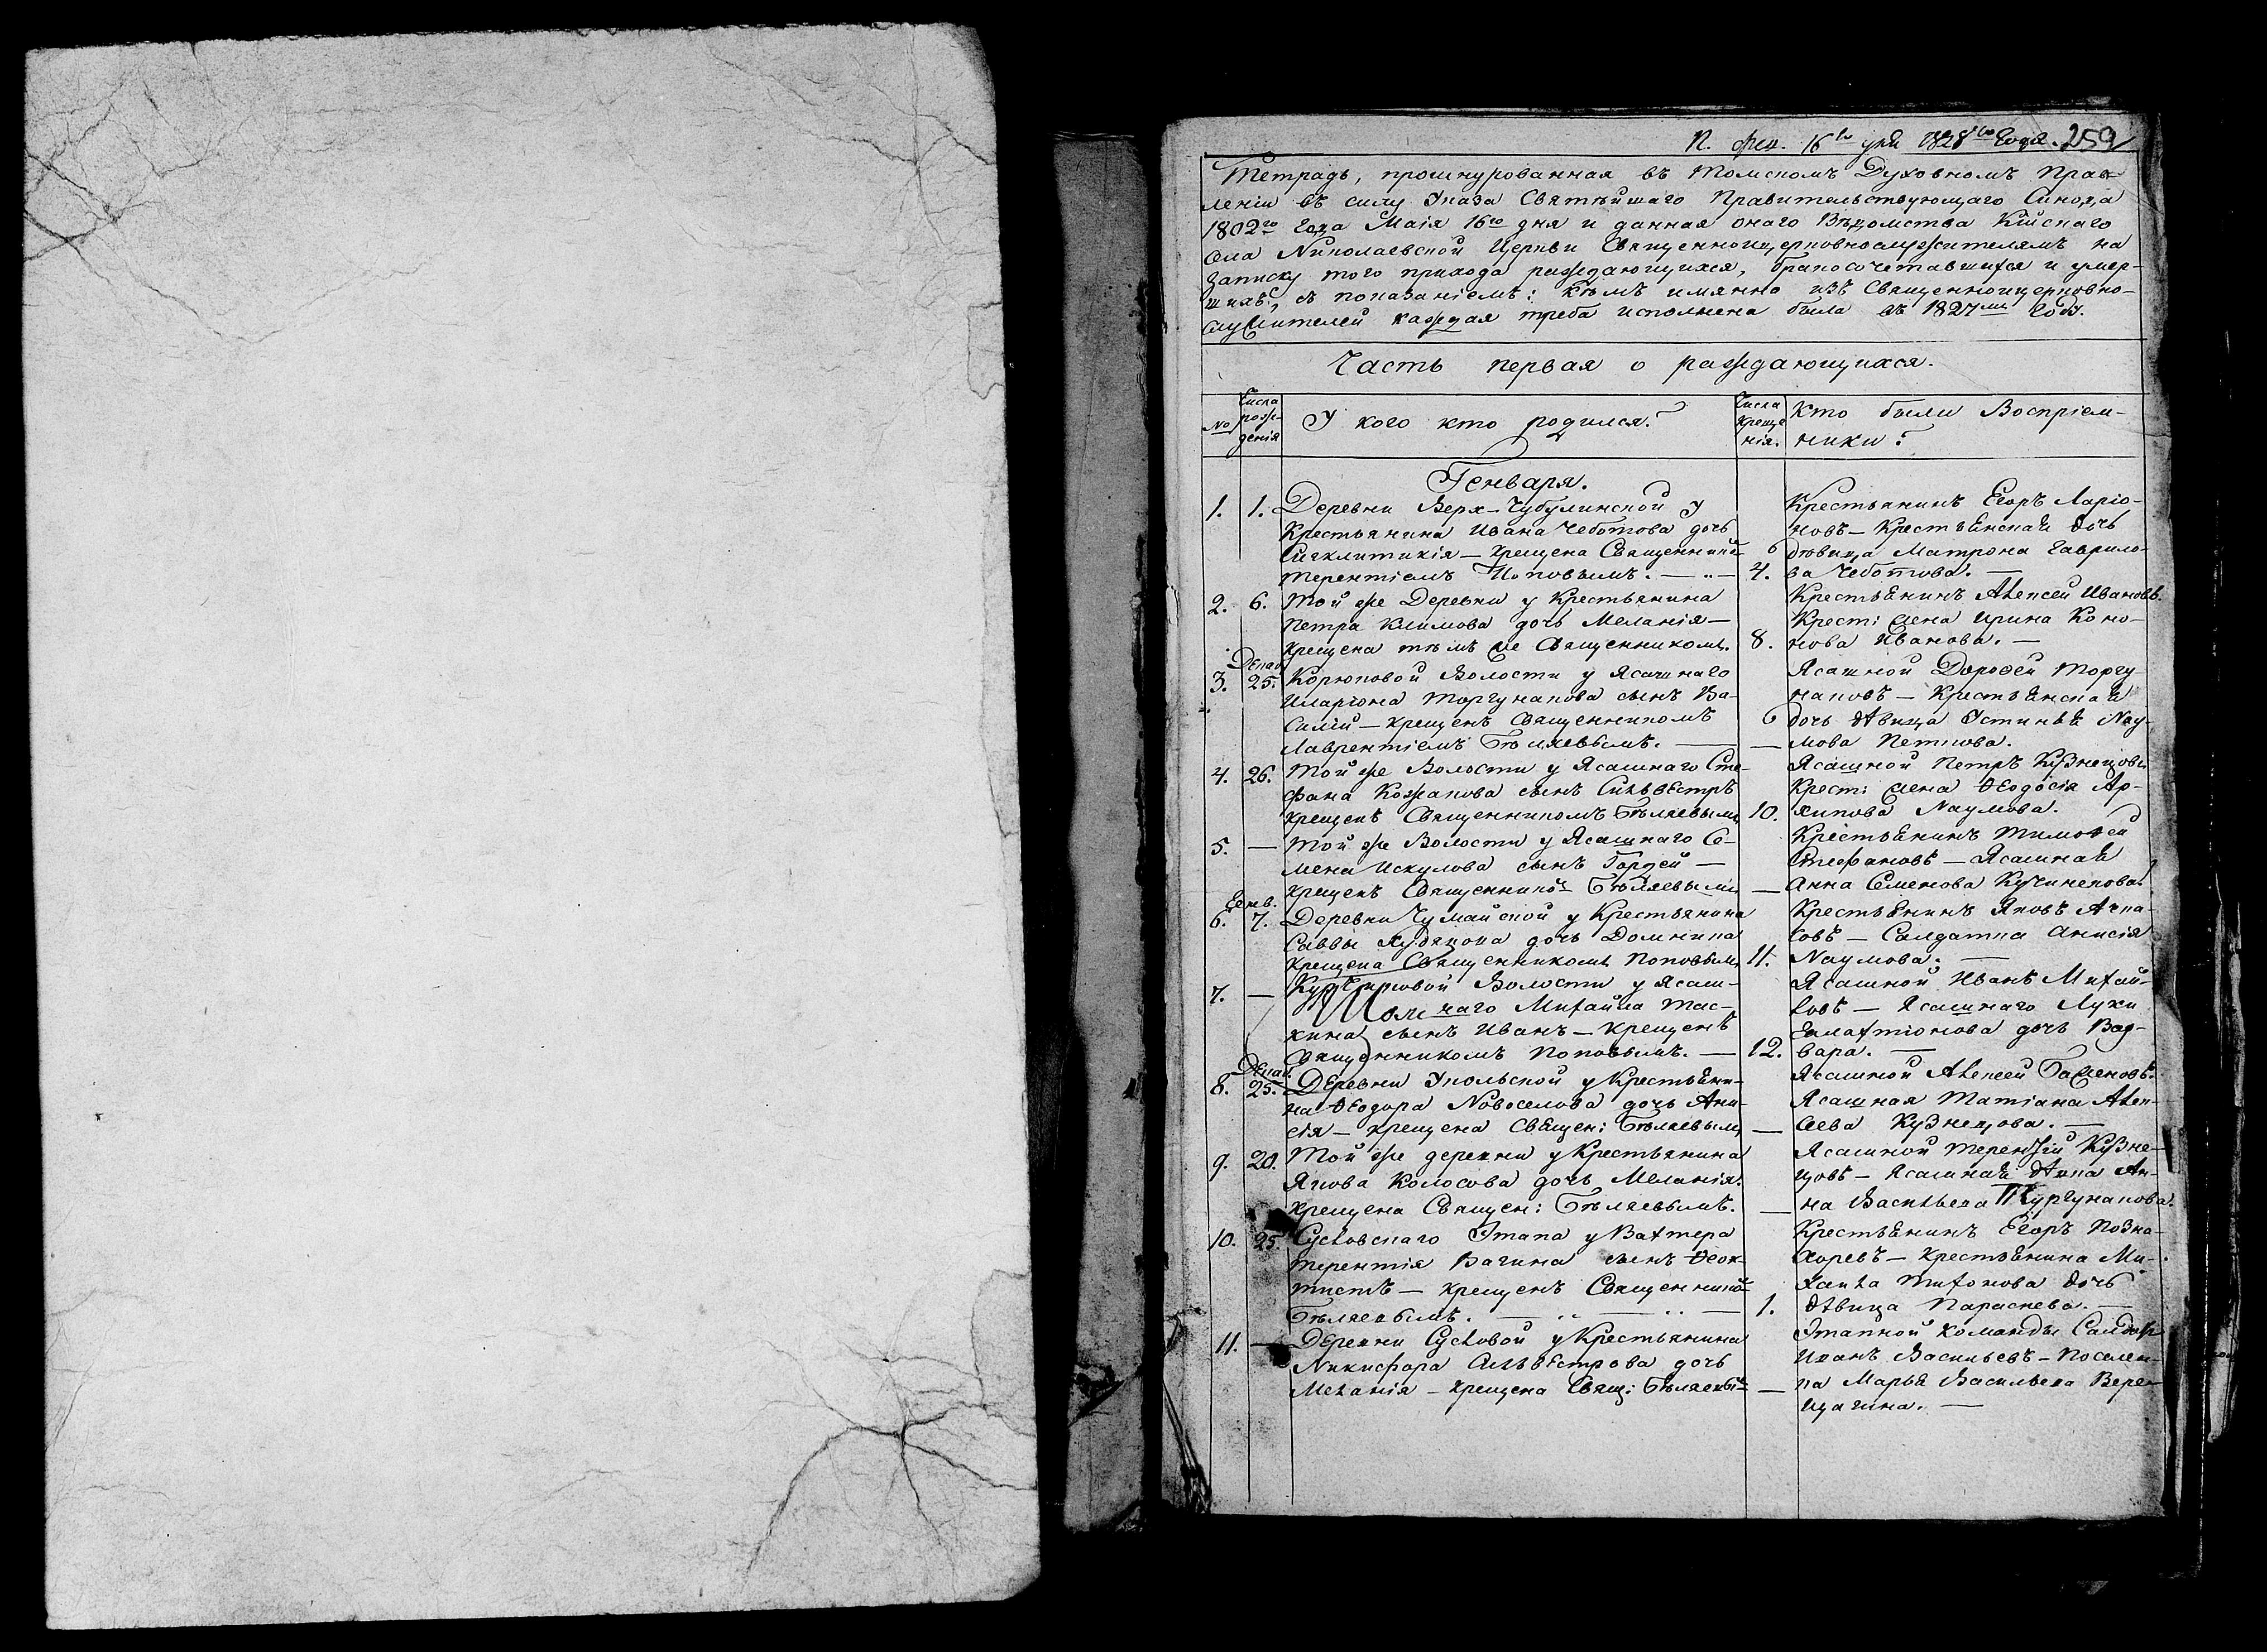 П. фев. 16го дня 1828го года. 259
Тетрадь, прошнурованная въ Томскомъ Духовномъ Прав-
леніи въ силу Указа Святѣйшаго Правительствующаго Синода
1802го года Маія 16го дня и данная онаго Вѣдомства Кійскаго
села Николаевской Церкви Священноцерковнослужителямъ на
записку того прихода раждающихся, бракосочетавшихся и умер-
шихъ, съ показаніемъ: кѣмъ имянно изъ Священноцерковно-
служителей каждая треба исполнена была въ 1827мъ году.
Часть первая о раждающихся.
№
Числа рож-
денія
У кого кто родился?
Числа креще
нія.
Кто были Воспріем-
ники?
Генваря.
1. 1. Деревни Верх-Чубулинской у
Крестьянина Ивана Чеботова дочь
Сигклитикія — крещена Священнико
Терентіемъ Поповымъ. — 4.
Крестьянинъ Егоръ Ларіо-
новъ — Крестьянская дочь
дѣвица Матрона Гаврило-
ва Чеботова. —
2. 6. Той же Деревни у Крестьянина
Петра Климова дочь Меланія —
крещена тѣмъ же Священникомъ. 8.
Крестьянинъ Алексей Ивановъ.
Крест: жена Ирина Коно-
нова Иванова. —
Декаб.
3. 25. Корюковой Волости у Ясашнаго
Иларіона Торгунакова сынъ Ва-
силій — крещенъ Священникомъ
Лаврентіемъ Бѣляевымъ. — —
Ясашной Дорофей Торгу-
наковъ — Крестьянская
дочь дѣвица Устинья Нау-
мова Петкова.
4. 26. Той же Волости у Ясашнаго Сте-
фана Кожакова сынъ Сильвестръ
крещенъ Священникомъ Бѣляевымъ 10.
Ясашной Петръ Кузнецовъ
Крест: жена Феодосія Ар-
хипова Наумова.
5. — Той же Волости у Ясашнаго Се-
мена Искулова сынъ Гордей —
крещенъ Священнико Бѣляевымъ —
Крестьянинъ Тимофей
Стефановъ — Ясашная
Анна Семенова Кучинекова.
Генв.
6. 7. Деревни Чумайской у Крестьянина
Саввы Худякова дочь Домника
крещена Священникомъ Поповымъ 11.
Крестьянинъ Яковъ Ачка-
совъ — Салдатка Анисія
Наумова. —
7. — Волости у Ясаш-
наго Михайла Тас-
кина сынъ Иванъ — крещенъ
Священникомъ Поповымъ. — 12.
Ясашной Иванъ Михай-
ловъ — Ясашнаго Луки
дочь Вар-
вара. —
Декаб.
8. 25. Деревни Укольской у Крестьяни-
на Феодора Новоселова дочь Ани-
сія — крещена Священ: Бѣляевымъ —
Ясашной Алексей
Ясашная Татіана Алек-
сеева Кузнецова. —
9. 20. Той же деревни у Крестьянина
Якова Колосова дочь Меланія.
крещена Священ: Бѣляевымъ. —
Ясашной Терентій Кузне-
цовъ — Ясашная Ан-
на Васильева Тургунакова.
10. 25. Сусловскаго Этапа у Вахтера
Терентія Вагина сынъ Феок-
тистъ — крещенъ Священнико
Бѣляевымъ. — 1.
Крестьянинъ Егоръ Позна-
хоревъ — крестьянина Ми-
хаила Тихонова дочь
дѣвица Параскева. —
11. — Деревни Сусловой у Крестьянина
Никифора Сильвестрова дочь
Меланія — крещена Свящ: Бѣляевы —
Этапной команды Салдатъ
Иванъ Васильевъ — Поселен-
ка Марья Васильева Вере-
щагина. —